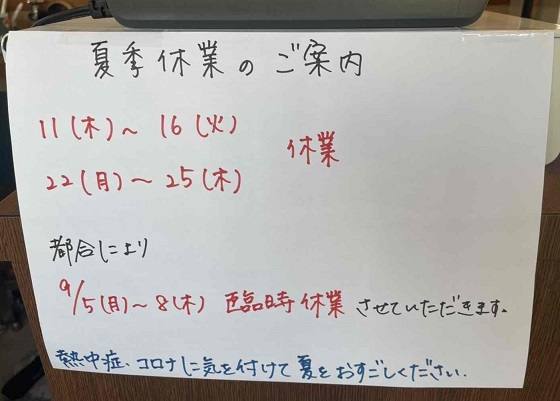 夏季休業のご案内
11(木)～16(火)
休業
22(月)～25(木)
都合により
9/5(月)～8(木) 臨時休業 させていただきます。
熱中症、コロナに気を付けて夏をおすごしください.